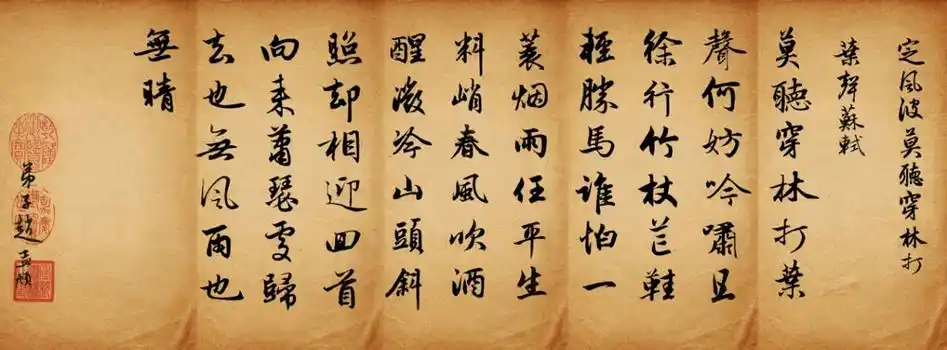 定風波莫聽穿林打
葉聲蘇軾
莫聽穿林打葉
聲何妨吟嘯且
徐行竹杖芒鞋
輕勝馬誰怕一
蓑烟雨任平生
料峭春風吹酒
醒微冷山頭斜
照却相迎回首
向来蕭瑟處歸
去也無風雨也
無晴
弟子趙